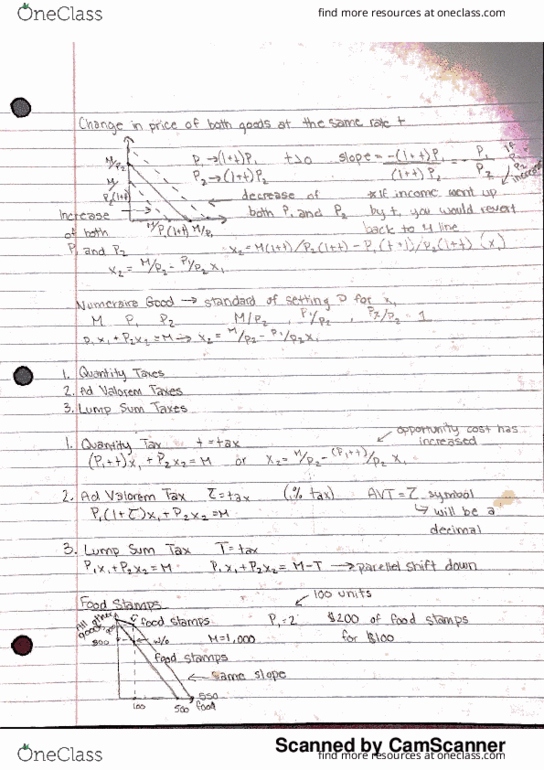 OneClass
find more resources at oneclass.com
Change in price of both goods at the same rate t
P₁→(1+t)P₁ t>0 slope = -(1+t)P₁/(1+t)P₂ = -P₁/P₂
P₂→(1+t)P₂
M/P₂
M/P₂(1+t)
decrease of both P₁ and P₂
*If income went up by t, you would revert back to 4 line
Increase of both P₁ and P₂
M/P₁(1+t) M/P₁
x₂ = M(1+t)/P₂(1+t) - P₁(t+1)/P₂(1+t) (x₁)
x₂ = M/P₂ - P₁/P₂ x₁
Numeraire Good → standard of setting for x₁
M P₁ P₂ M/P₂, P₁/P₂, P₂/P₂ = 1
P₁x₁+P₂x₂=M → x₂ = M/P₂ - P₁/P₂ x₁
1. Quantity Taxes
2. Ad Valorem Taxes
3. Lump Sum Taxes
opportunity cost has increased
1. Quantity Tax t=tax
(P₁+t)x₁+P₂x₂=M or x₂ = M/P₂ - (P₁+t)/P₂ x₁
2. Ad Valorem Tax τ=tax (% tax) AVT=τ symbol
P₁(1+τ)x₁+P₂x₂=M ↳ will be a decimal
3. Lump Sum Tax T=tax
P₁x₁+P₂x₂=M P₁x₁+P₂x₂=M-T → parellel shift down
Food Stamps
100 units
All other goods
food stamps P₁=2 $200 of food stamps
w/o food stamps M=1,000 for $100
same slope
100 500 550 food
Scanned by CamScanner
OneClass
find more resources at oneclass.com